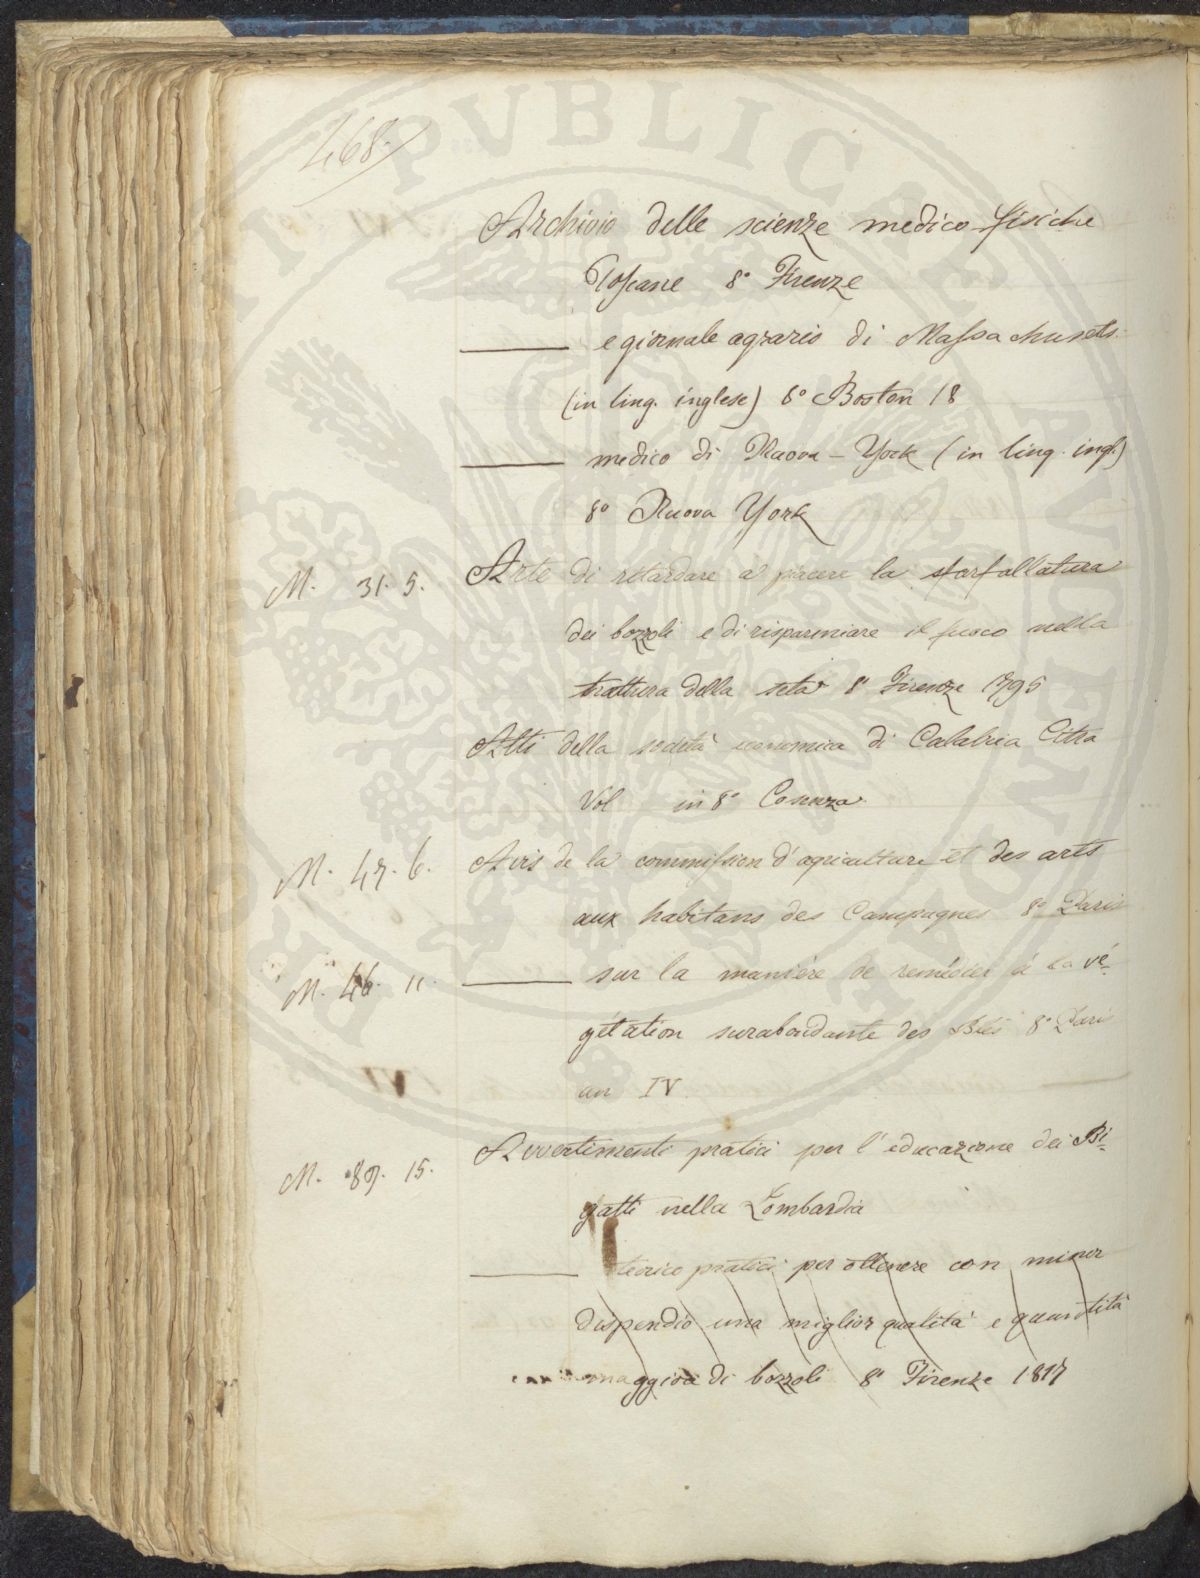 468.
Archivio delle scienze medico-fisiche
Toscane 8° Firenze
——— e giornale agrario di Massachusets.
(in ling. inglese) 8° Boston 18
——— medico di Nuova-York (in ling. ingl.)
8° Nuova York
M. 31. 5. Arte di ritardare a piacere la sfarfallatura
dei bozzoli e di risparmiare il fuoco nella
trattura della seta 8° Firenze 1795
Atti della società economica di Calabria Citra
Vol in 8° Cosenza.
M. 47. 6. Avis de la commission d'agriculture et des arts
aux habitans des Campagnes 8° Paris
M. 46. 11. ——— sur la manière de remédier à la vé-
gétation surabondante des Blés 8° Paris
an IV
M. 89. 15. Avvertimenti pratici per l'educazione dei Bi-
gatti nella Lombardia
——— teorico pratici per ottenere con minor
dispendio una miglior qualità e quantità
maggiore di bozzoli 8° Firenze 1817